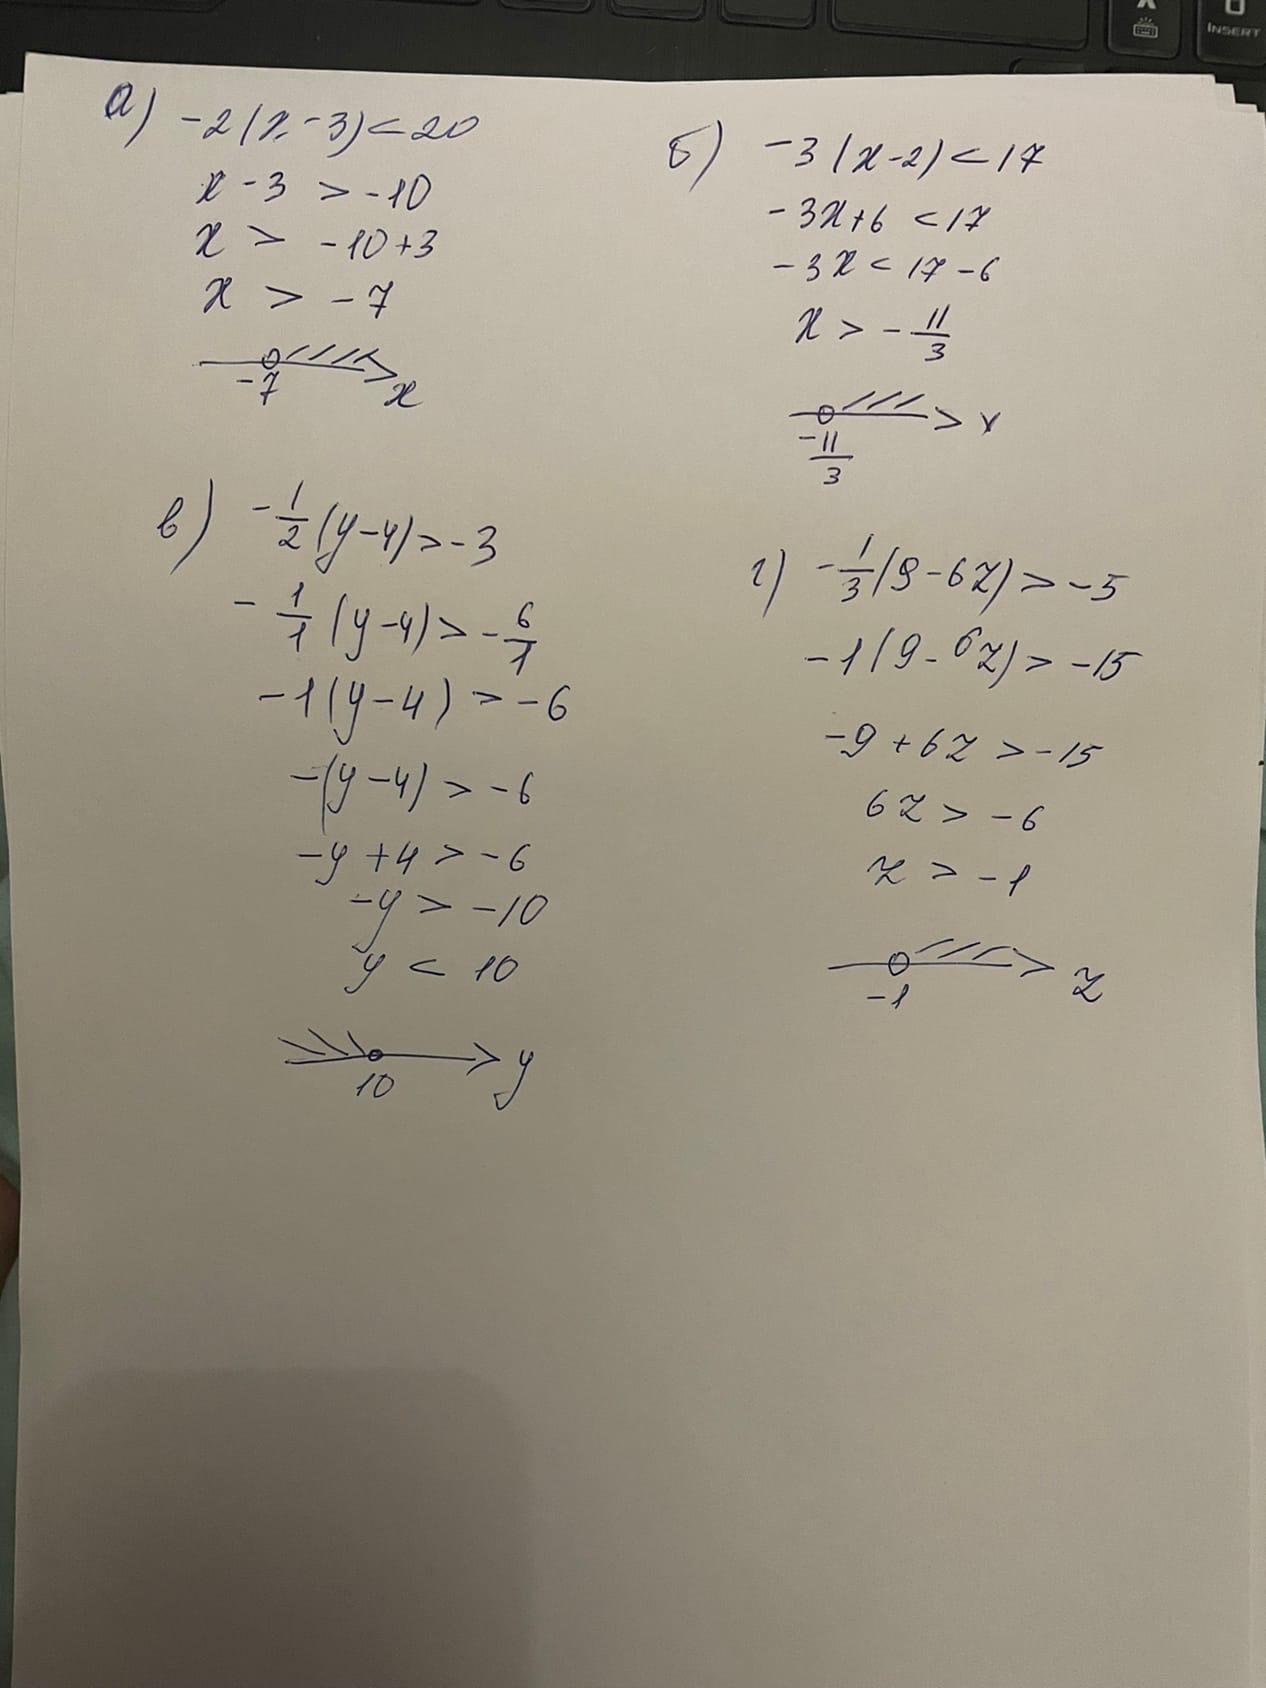 INSERT
а) -2(x-3)<20
x-3 > -10
x > -10+3
x > -7
-7
x
б) -3(x-2)<17
-3x+6 <17
-3x< 17-6
x > -11/3
x
-11/3
в) -1/2(y-4)>-3
-1/1(y-4)>-6/1
-1(y-4) > -6
-(y-4) > -6
-y+4 > -6
-y > -10
y < 10
10
y
г) -1/3(9-6z)>-5
-1(9-6z)>-15
-9+6z >-15
6z > -6
z > -1
-1
z